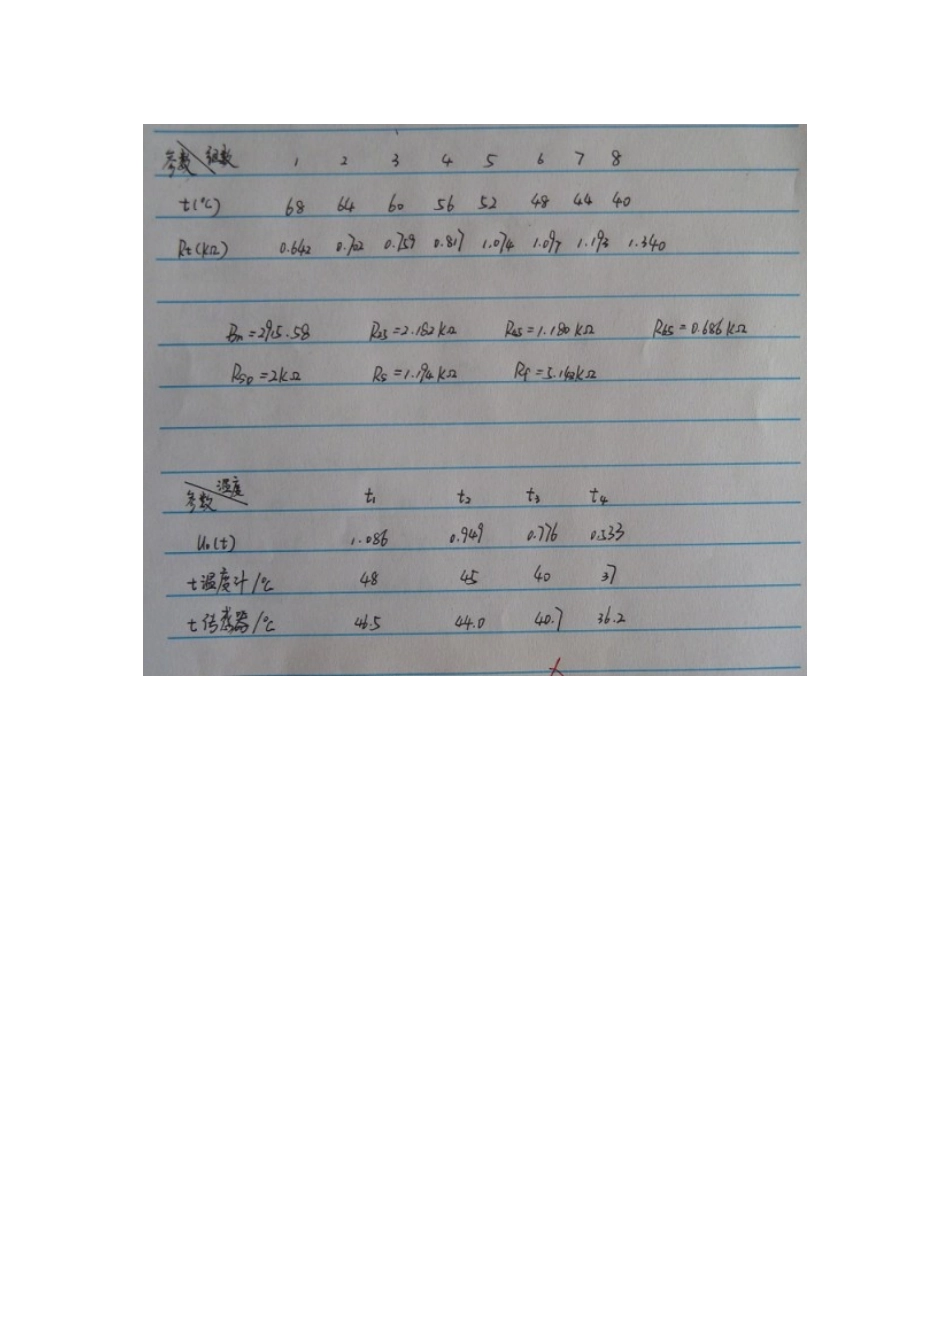 参数 组数 1 2 3 4 5 6 7 8
t(℃) 68 64 60 56 52 48 44 40
Rt(kΩ) 0.642 0.722 0.759 0.817 1.074 1.097 1.193 1.340
Bn=295.58 R25=2.182kΩ R45=1.180kΩ R65=0.686kΩ
=2kΩ Rs=1.194kΩ Rf=5.142kΩ
参数 温度 t1 t2 t3 t4
U0(t) 1.086 0.949 0.776 0.533
t温度计/℃ 48 45 40 37
t传感器/℃ 46.5 44.0 40.7 36.2